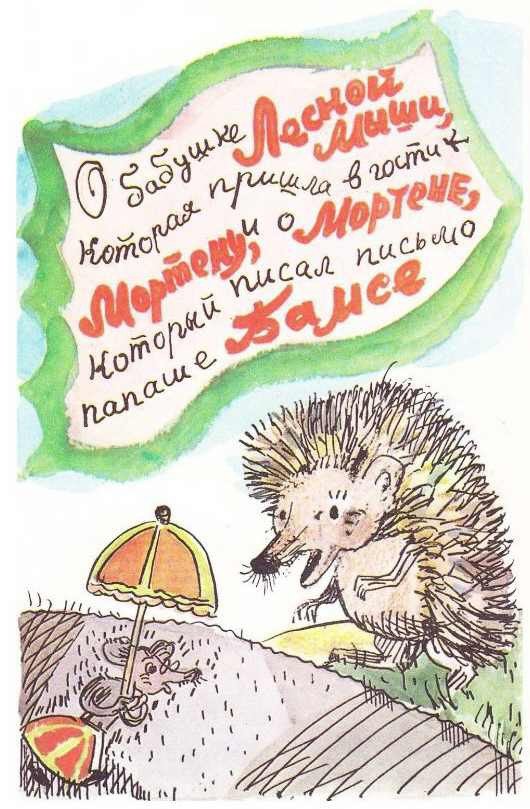 О бабушке Лесной
Мыши,
которая пришла в гости к
Мортену, и о Мортене,
который писал письмо
папаше Бамсе